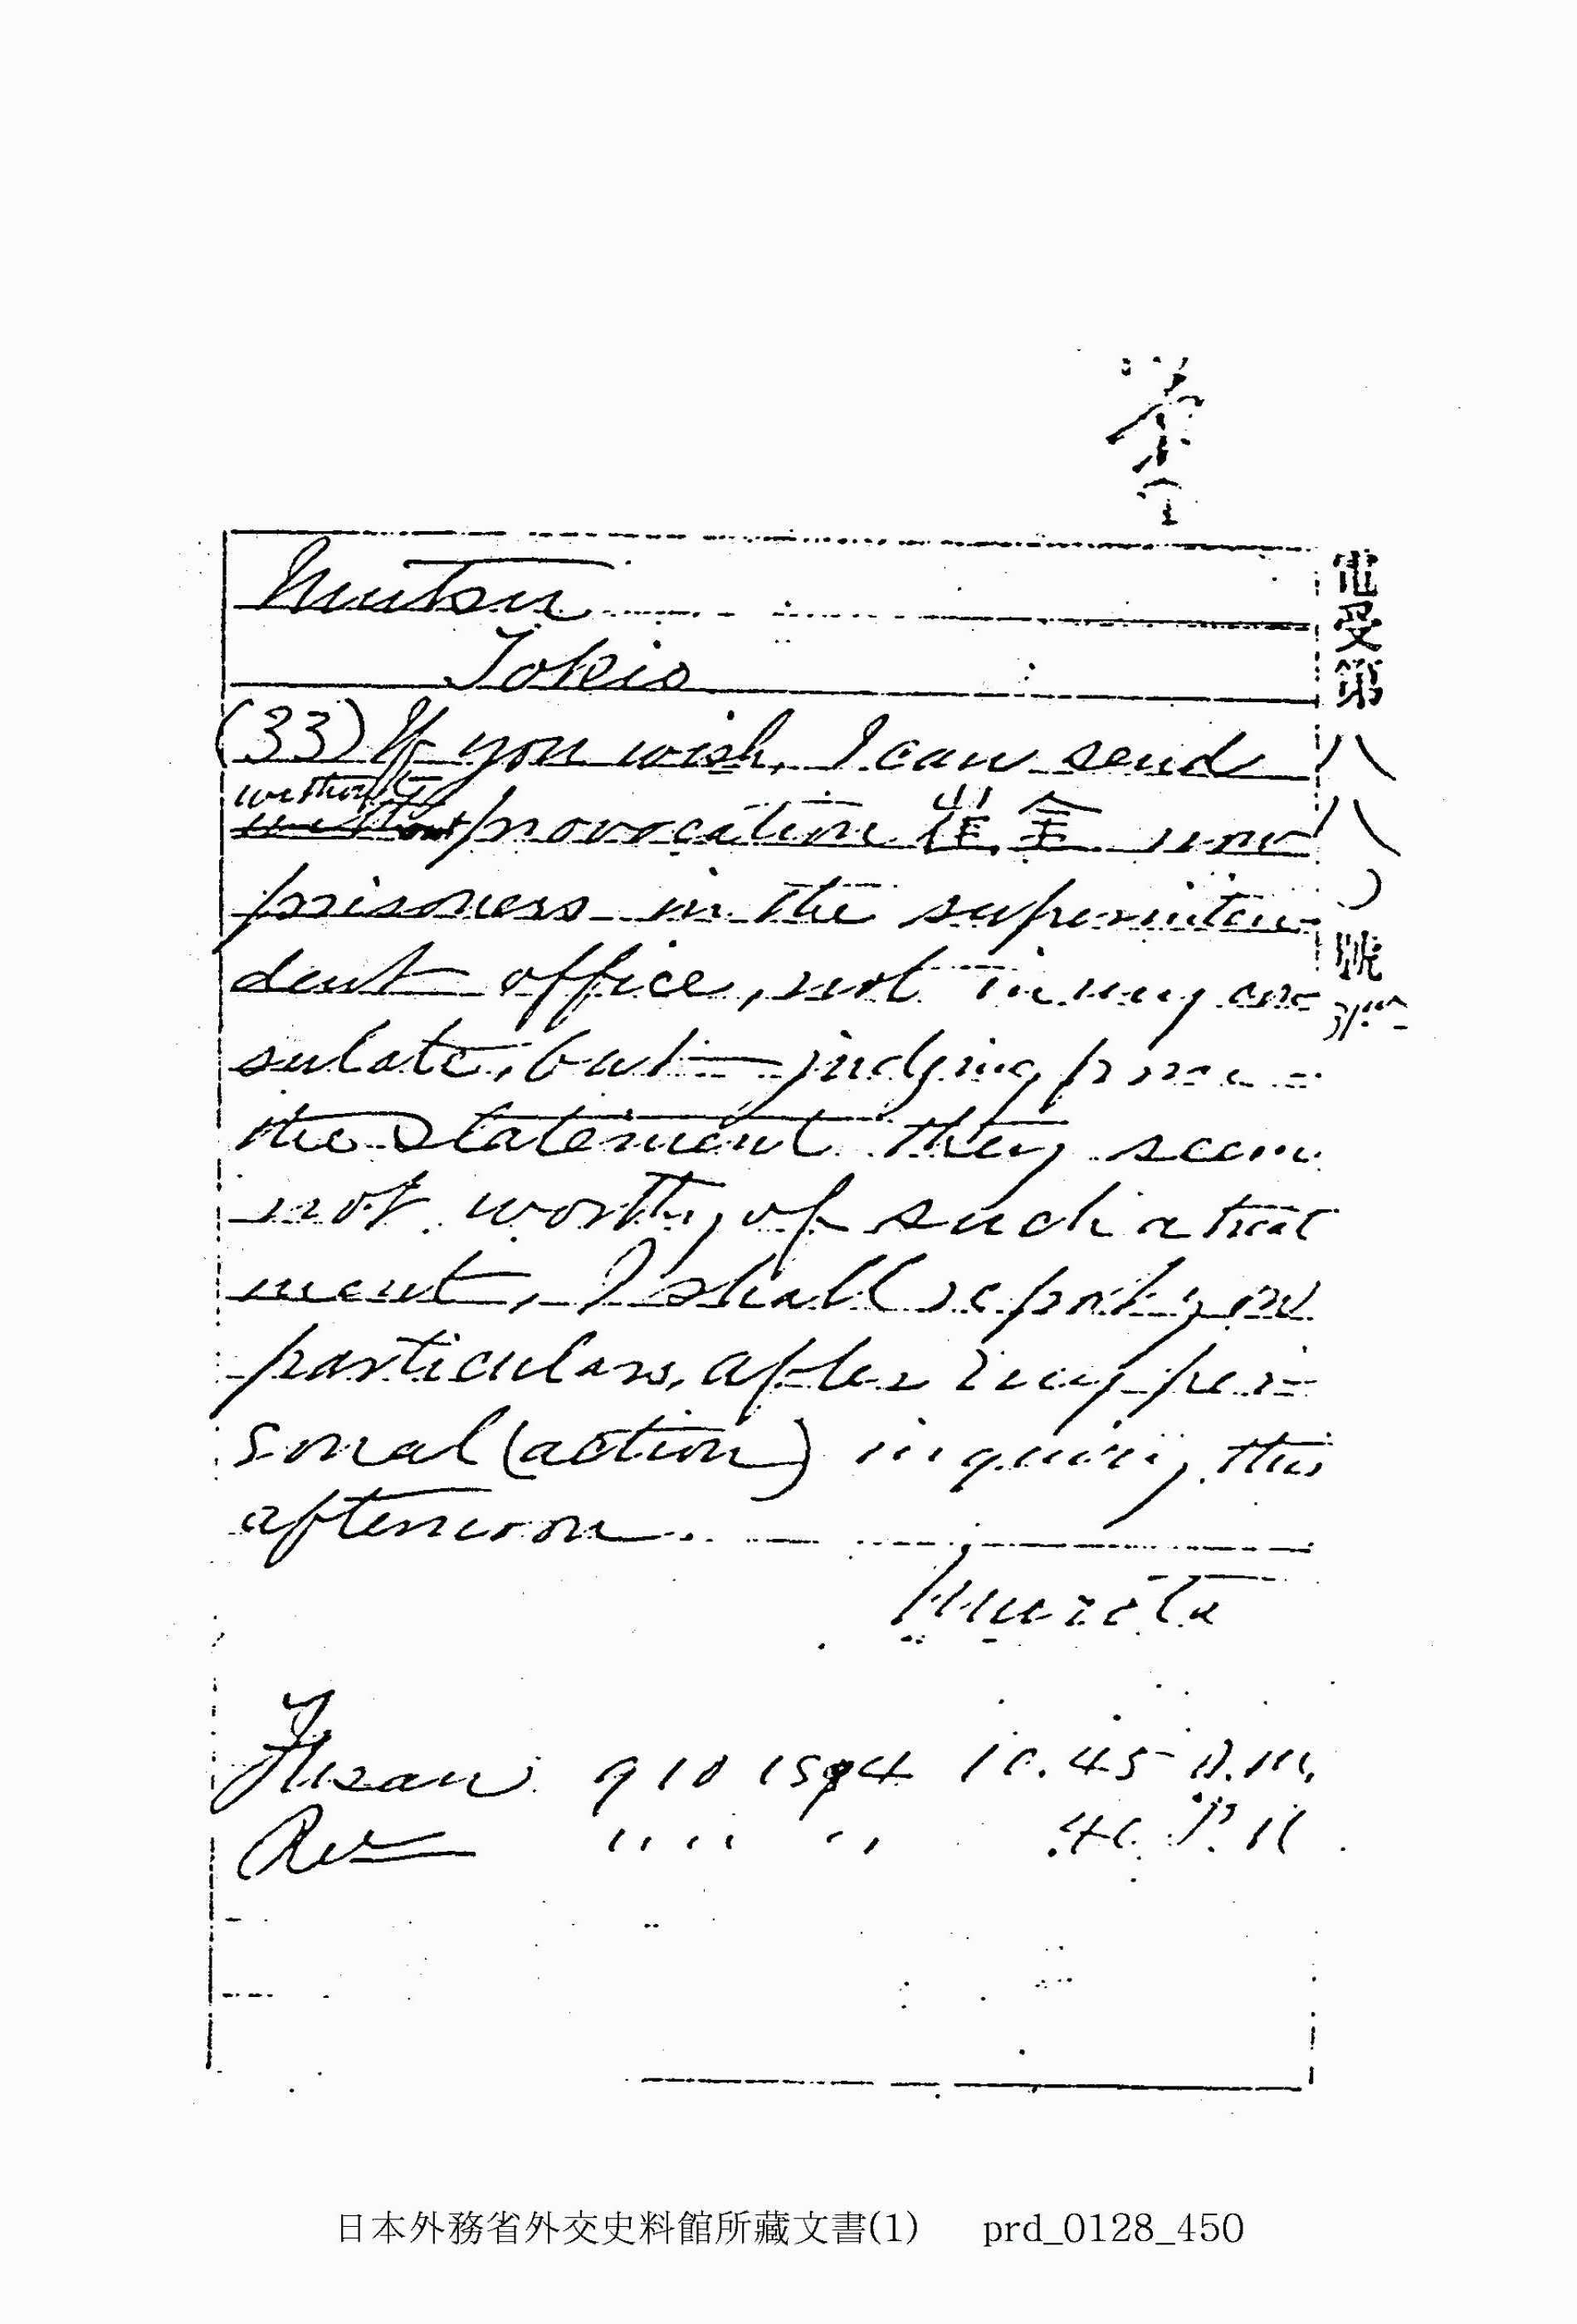 電受第八八〇號
Mutsu
Tokio
(33) If you wish, I can send
without
without provocation 崔, 金 now
prisoners in the superinten-
dent office, not in my con-
sulate, but judging from
the statement they seem
not worthy of such a treat
ment, I shall report you
particulars, after my per-
sonal (action) inquiry this
afternoon.
Murota
Fusan 9 10 1894 10.45 A.M.
Rec " " " .40 P.M.
日本外務省外交史料館所藏文書(1) prd_0128_450